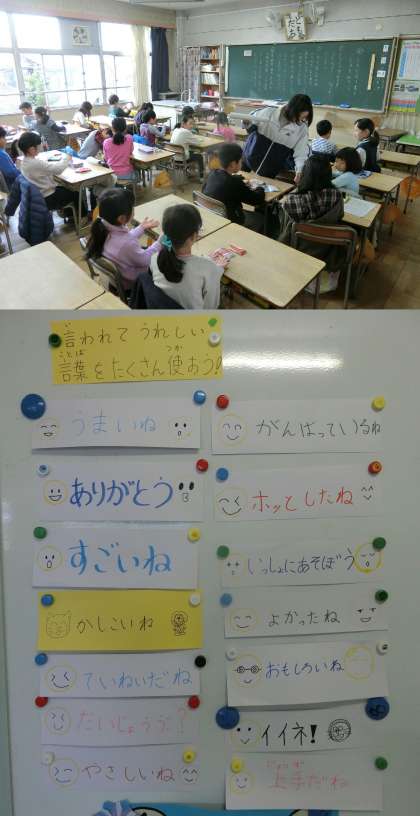 言われてうれしい
言葉をたくさん使おう!
うまいね
ありがとう
すごいね
かしこいね
ていねいだね
だいじょうぶ?
やさしいね
がんばっているね
ホッとしたね
いっしょにあそぼう
よかったね
おもしろいね
イイネ!
上手だね